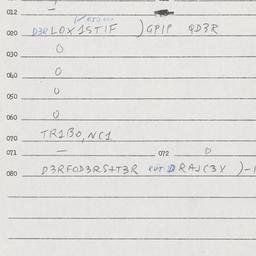 012 —
020 D3RLOX1STIF )GPIP QD3R
030 0
040 0
050 0
060 0
070 TR1BO,NC1
071 — 072 0
080 D3RFOD3RS+T3R RAJC3Y )-